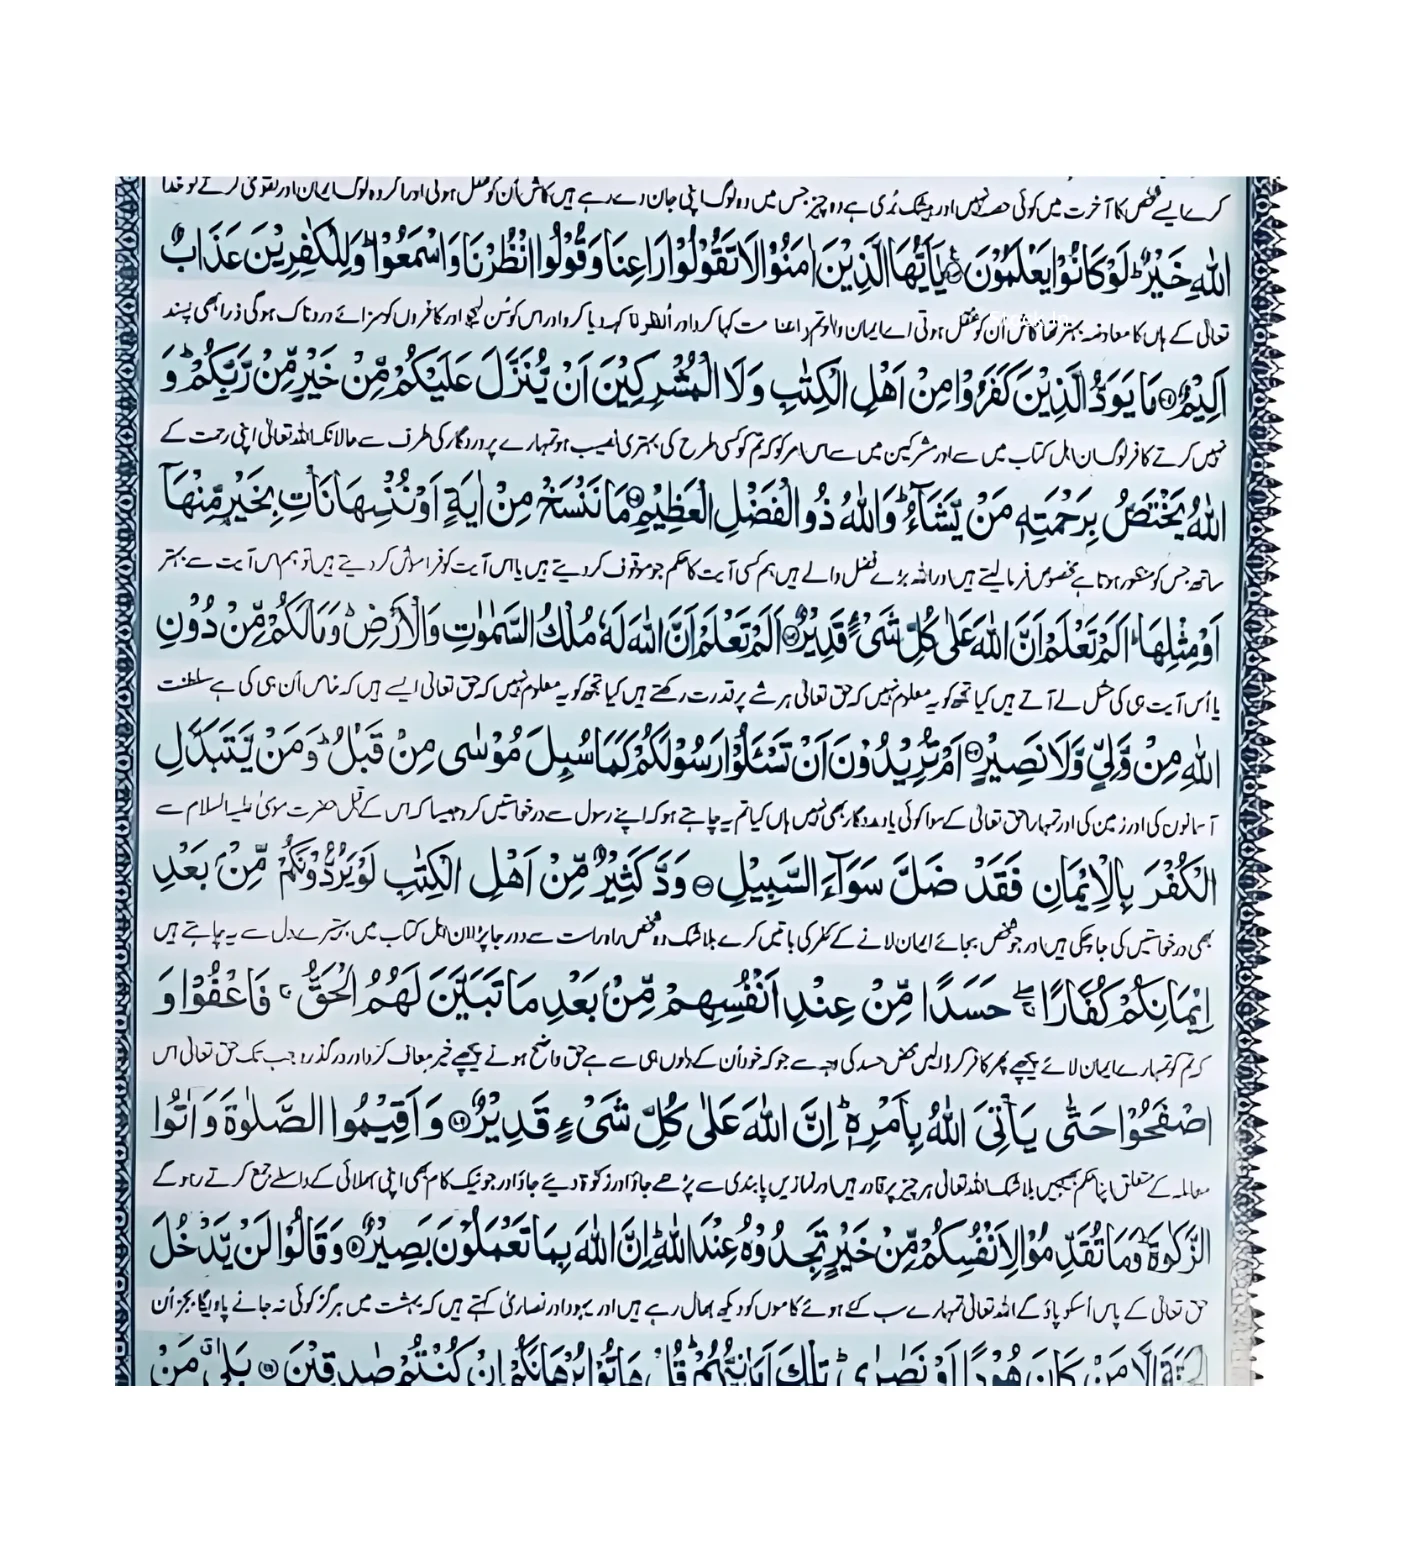 کرے ایسے شخص کا آخرت میں کوئی حصہ نہیں اور بیشک بُری ہے وہ چیز جس میں وہ لوگ اپنی جان دے رہے ہیں کاش اُن کو عقل ہوتی اور اگر وہ لوگ ایمان اور تقویٰ کرتے تو خدا
اللّٰهِ خَيْرٌ ؕ لَوْ كَانُوْا يَعْلَمُوْنَ يٰۤاَيُّهَا الَّذِيْنَ اٰمَنُوْا لَا تَقُوْلُوْا رَاعِنَا وَقُوْلُوا انْظُرْنَا وَاسْمَعُوْا ؕ وَلِلْكٰفِرِيْنَ عَذَابٌ
تعالیٰ کے ہاں کا معاوضہ بہتر تھا کاش اُن کو عقل ہوتی اے ایمان والو تم راعنا مت کہا کرو اور اُنظرنا کہہ دیا کرو اور اس کو سُن لیجیو اور کافروں کو سزائے دردناک ہوگی ذرا بھی پسند
اَلِيْمٌ مَا يَوَدُّ الَّذِيْنَ كَفَرُوْا مِنْ اَهْلِ الْكِتٰبِ وَلَا الْمُشْرِكِيْنَ اَنْ يُّنَزَّلَ عَلَيْكُمْ مِّنْ خَيْرٍ مِّنْ رَّبِّكُمْ ؕ وَ
نہیں کرتے کافر لوگ ان اہل کتاب میں سے اور مشرکین میں سے اس امر کو کہ تم کو کسی طرح کی بہتری نصیب ہو تمہارے پروردگار کی طرف سے حالانکہ اللہ تعالیٰ اپنی رحمت کے
اللّٰهُ يَخْتَصُّ بِرَحْمَتِهٖ مَنْ يَّشَآءُ ؕ وَاللّٰهُ ذُو الْفَضْلِ الْعَظِيْمِ مَا نَنْسَخْ مِنْ اٰيَةٍ اَوْ نُنْسِهَا نَاْتِ بِخَيْرٍ مِّنْهَاۤ
ساتھ جس کو منظور ہوتا ہے مخصوص فرما لیتے ہیں اور اللہ بڑے فضل والے ہیں ہم کسی آیت کا حکم جو موقوف کر دیتے ہیں یا اس آیت کو فراموش کر دیتے ہیں تو ہم اس آیت سے بہتر
اَوْ مِثْلِهَا ؕ اَلَمْ تَعْلَمْ اَنَّ اللّٰهَ عَلٰى كُلِّ شَىْءٍ قَدِيْرٌ اَلَمْ تَعْلَمْ اَنَّ اللّٰهَ لَهٗ مُلْكُ السَّمٰوٰتِ وَالْاَرْضِ ؕ وَمَا لَكُمْ مِّنْ دُوْنِ
یا اُس آیت ہی کی مثل لے آتے ہیں کیا تجھ کو یہ معلوم نہیں کہ حق تعالیٰ ہر شے پر قدرت رکھتے ہیں کیا تجھ کو یہ معلوم نہیں کہ حق تعالیٰ ایسے ہیں کہ خاص اُن ہی کی ہے سلطنت
اللّٰهِ مِنْ وَّلِىٍّ وَّلَا نَصِيْرٍ اَمْ تُرِيْدُوْنَ اَنْ تَسْئَلُوْا رَسُوْلَكُمْ كَمَا سُئِلَ مُوْسٰى مِنْ قَبْلُ ؕ وَمَنْ يَّتَبَدَّلِ
آسمانوں کی اور زمین کی اور تمہارا حق تعالیٰ کے سوا کوئی یار و مددگار بھی نہیں ہاں کیا تم یہ چاہتے ہو کہ اپنے رسول سے درخواستیں کرو جیسا کہ اس کے قبل حضرت موسیٰ علیہ السلام سے
الْكُفْرَ بِالْاِيْمَانِ فَقَدْ ضَلَّ سَوَآءَ السَّبِيْلِ وَدَّ كَثِيْرٌ مِّنْ اَهْلِ الْكِتٰبِ لَوْ يَرُدُّوْنَكُمْ مِّنْۢ بَعْدِ
بھی درخواستیں کی جا چکی ہیں اور جو شخص بجائے ایمان لانے کے کفر کی باتیں کرے بلاشک وہ شخص راہ راست سے دور جا پڑا ان اہل کتاب میں بہتیرے دل سے یہ چاہتے ہیں
اِيْمَانِكُمْ كُفَّارًا ۖۚ حَسَدًا مِّنْ عِنْدِ اَنْفُسِهِمْ مِّنْۢ بَعْدِ مَا تَبَيَّنَ لَهُمُ الْحَقُّ ۚ فَاعْفُوْا وَ
کہ تم کو تمہارے ایمان لائے پیچھے پھر کافر کر ڈالیں محض حسد کی وجہ سے جو کہ خود اُن کے دلوں ہی سے ہے حق واضح ہونے پیچھے خیر معاف کرو اور درگذرو جب تک حق تعالیٰ اس
اصْفَحُوْا حَتّٰى يَاْتِىَ اللّٰهُ بِاَمْرِهٖ ؕ اِنَّ اللّٰهَ عَلٰى كُلِّ شَىْءٍ قَدِيْرٌ وَاَقِيْمُوا الصَّلٰوةَ وَاٰتُوا
معاملہ کے متعلق اپنا حکم بھیجیں بلاشک اللہ تعالیٰ ہر چیز پر قادر ہیں اور نمازیں پابندی سے پڑھے جاؤ اور زکوٰۃ دیئے جاؤ اور جو نیک کام بھی اپنی بھلائی کے واسطے جمع کرتے رہو گے
الزَّكٰوةَ ؕ وَمَا تُقَدِّمُوْا لِاَنْفُسِكُمْ مِّنْ خَيْرٍ تَجِدُوْهُ عِنْدَ اللّٰهِ ؕ اِنَّ اللّٰهَ بِمَا تَعْمَلُوْنَ بَصِيْرٌ وَقَالُوْا لَنْ يَّدْخُلَ
حق تعالیٰ کے پاس اُسکو پاؤ گے اللہ تعالیٰ تمہارے سب کئے ہوئے کاموں کو دیکھ بھال رہے ہیں اور یہود اور نصاریٰ کہتے ہیں کہ بہشت میں ہرگز کوئی نہ جانے پاویگا بجز اُن
اِلَّا مَنْ كَانَ هُوْدًا اَوْ نَصٰرٰى ؕ تِلْكَ اَمَانِيُّهُمْ ؕ قُلْ هَاتُوْا بُرْهَانَكُمْ اِنْ كُنْتُمْ صٰدِقِيْنَ بَلٰى مَنْ